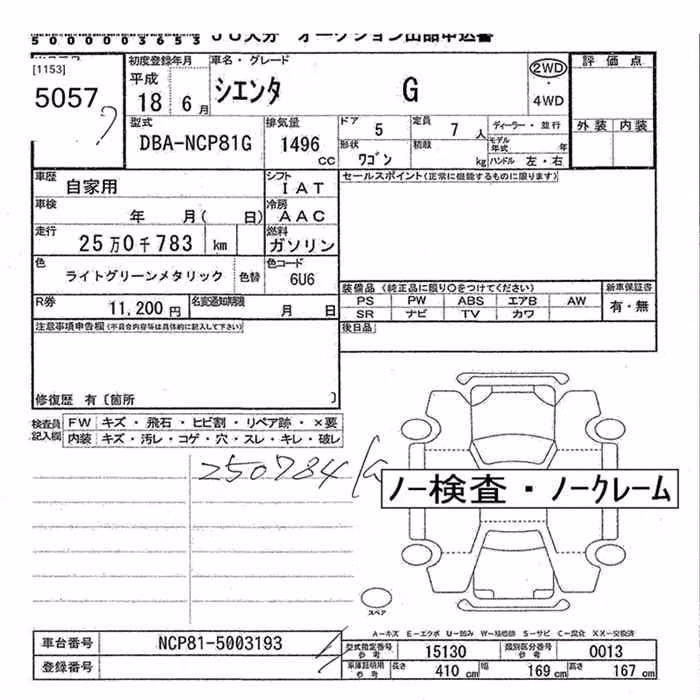 5000003653 JU大分 オークション出品申込書
[1153]
5057
初度登録年月
平成
18 6月
車名・グレード
シエンタ G
2WD
・
4WD
評価点
外装 内装
型式
DBA-NCP81G
排気量
1496 cc
ドア 5
定員 7 人
形状 ワゴン
積載 kg
ディーラー・並行
モデル年式 年
ハンドル 左・右
車歴 自家用
シフト IAT
セールスポイント(正常に機能するものに限ります)
車検 年 月( 日)
冷房 AAC
走行 25万0千783 km
燃料 ガソリン
色 ライトグリーンメタリック 色替
色コード 6U6
装備品(純正品に限り○をつけてください)
新車保証書
PS PW ABS エアB AW
有・無
SR ナビ TV カワ
R券 11,200円
名変通知期限 月 日
後日品
注意事項申告欄(不具合内容等は具体的に記入して下さい)
修復歴 有〔箇所 〕
検査員記入欄
FW キズ・飛石・ヒビ割・リペア跡・×要
内装 キズ・汚レ・コゲ・穴・スレ・キレ・破レ
250784
ノー検査・ノークレーム
スペア
A-キズ E-エクボ U-凹み W-補修跡 S-サビ C-腐食 XX-交換済
車台番号 NCP81-5003193
登録番号
型式指定番号 参考 15130
類別区分番号 参考 0013
車庫証明用 参考
長さ 410 cm 幅 169 cm 高さ 167 cm